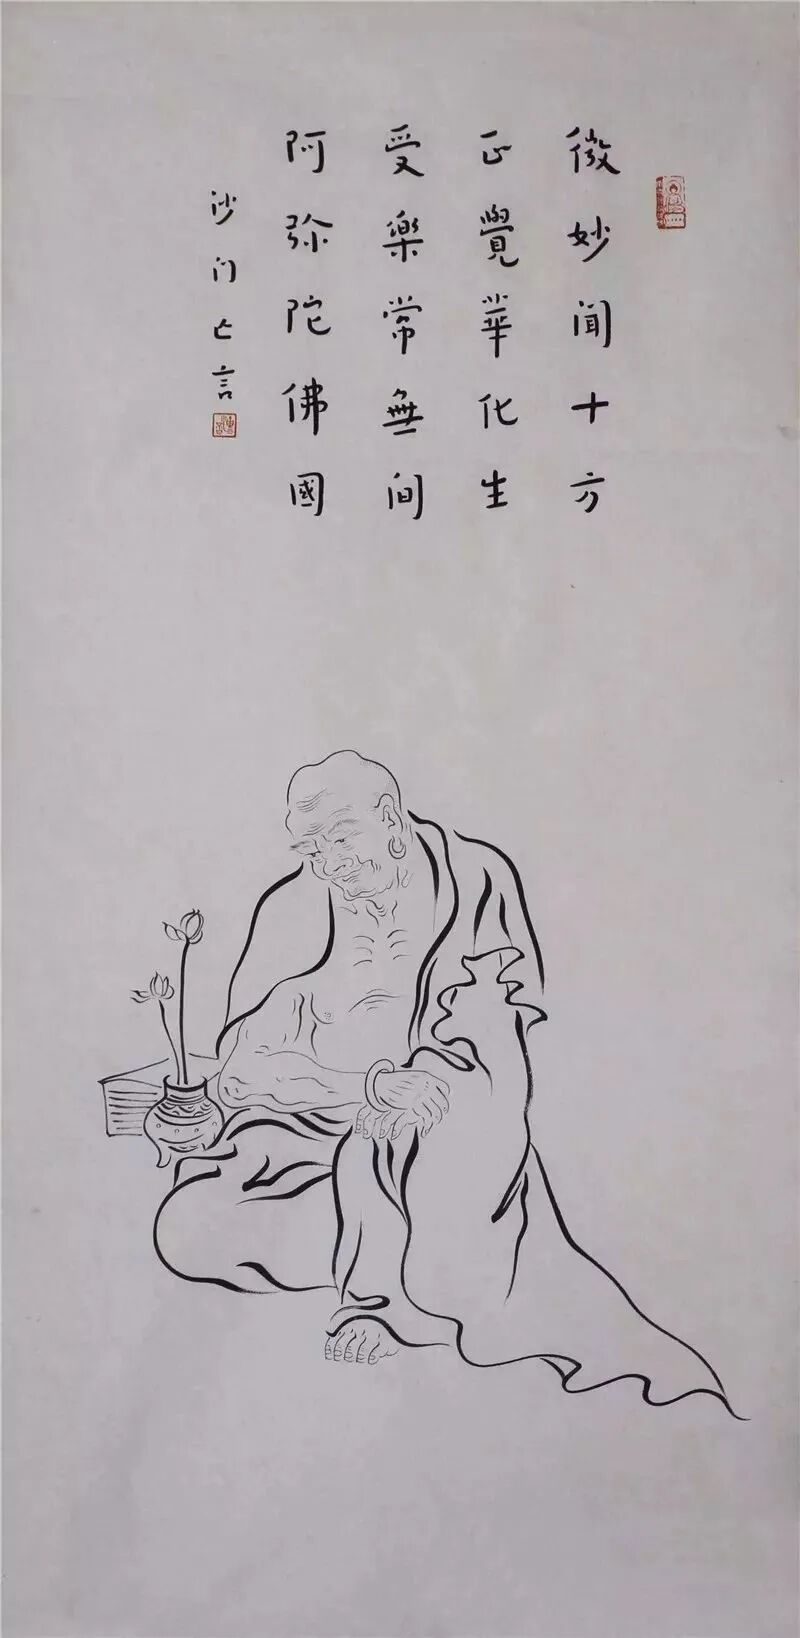 微妙闻十方
正覺華化生
受楽常無间
阿弥陀佛國
沙门亡言